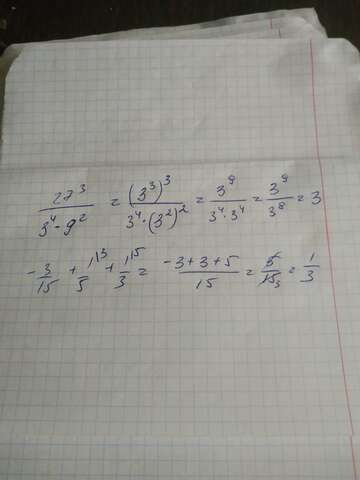 27³/(3⁴·9²) = (3³)³/(3⁴·(3²)²) = 3⁹/(3⁴·3⁴) = 3⁹/3⁸ = 3
-3/15 + 1\³/5 + 1\⁵/3 = (-3+3+5)/15 = 5/15₃ = 1/3